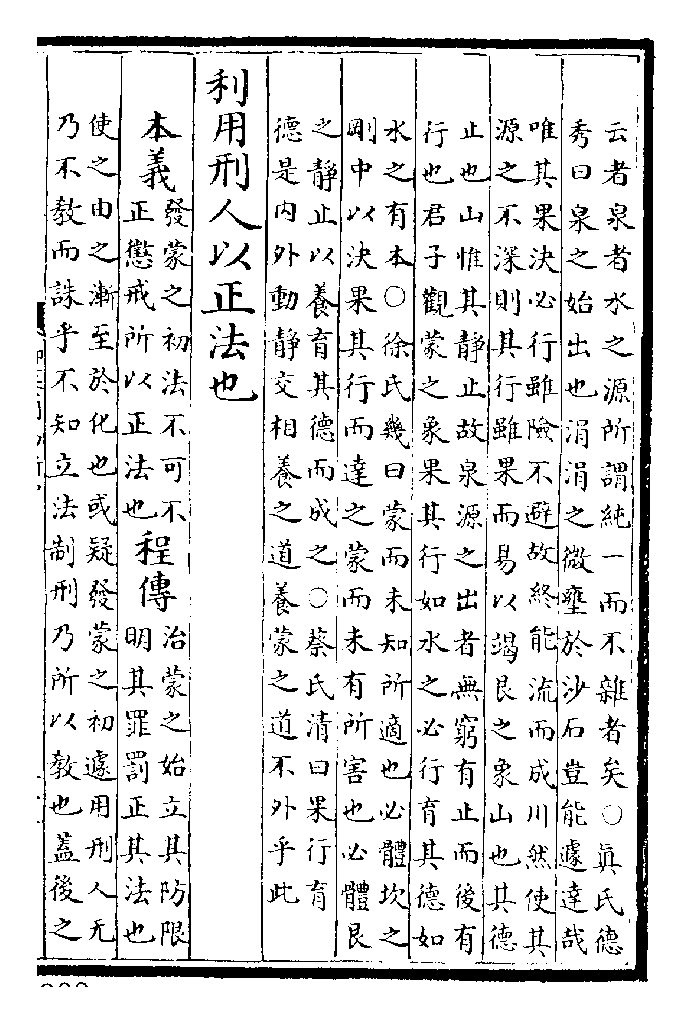 云者泉者水之源所謂純一而不雜者矣○眞氏德
秀曰泉之始出也涓涓之微壅於沙石豈能遽達哉
唯其果決必行雖險不避故終能流而成川然使其
源之不深則其行雖果而易以竭艮之象山也其德
止也山惟其靜止故泉源之出者無窮有止而後有
行也君子觀蒙之象果其行如水之必行育其德如
水之有本○徐氏幾曰蒙而未知所適也必體坎之
剛中以決果其行而達之蒙而未有所害也必體艮
之靜止以養育其德而成之○蔡氏清曰果行育
德是内外動靜交相養之道養蒙之道不外乎此
利用刑人以正法也
本義
發蒙之初法不可不
正懲戒所以正法也
程傳
治蒙之始立其防限
明其罪罰正其法也
使之由之漸至於化也或疑發蒙之初遽用刑人无
乃不教而誅乎不知立法制刑乃所以教也蓋後之